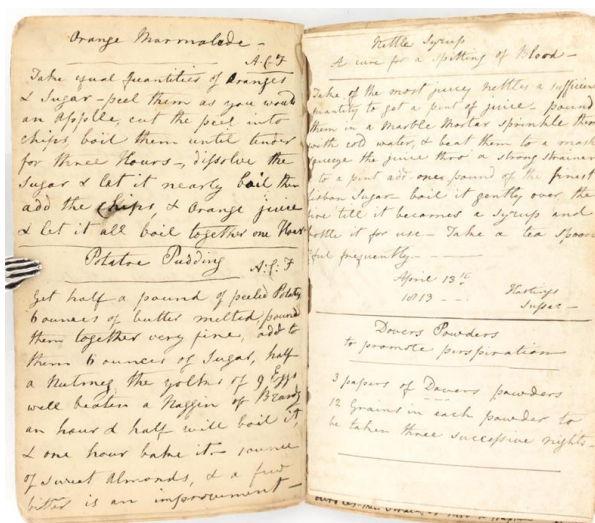 Orange Marmalade -
A.C.F
Take equal quantities of Oranges
& Sugar - peel them as you would
an Apple, cut the peel into
chips, boil them until tender
for three Hours -, dissolve the
Sugar & let it nearly boil then
add the Chips, & Orange juice
& let it all boil together one Hour
Potatoe Pudding
A.C.F
Get half a pound of peeled Potatoes
6 ounces of butter melted pound
them together very fine, add to
them 6 ounces of Sugar, half
a Nutmeg the yolks of 9 Eggs
well beaten a Naggin of Brandy
an hour & half will boil it,
& one hour bake it - 1 ounce
of sweet Almonds, & a few
bitter is an improvement -
Nettle Syrup
A cure for a spitting of Blood -
Take of the most juicy nettles a sufficient
quantity to get a pint of juice - pound
them in a Marble Mortar sprinkle them
with cold water, & beat them to a mash
squeeze the juice thro' a strong strainer
to a pint add one pound of the finest
Lisbon Sugar - boil it gently over the
fire till it becomes a syrup and
bottle it for use - Take a tea spoon
ful frequently -
April 13th
1813 - -
Hastings
Sussex -
Dovers Powders
to promote perspiration
3 papers of Dovers powders
12 Grains in each powder to
be taken three successive nights -